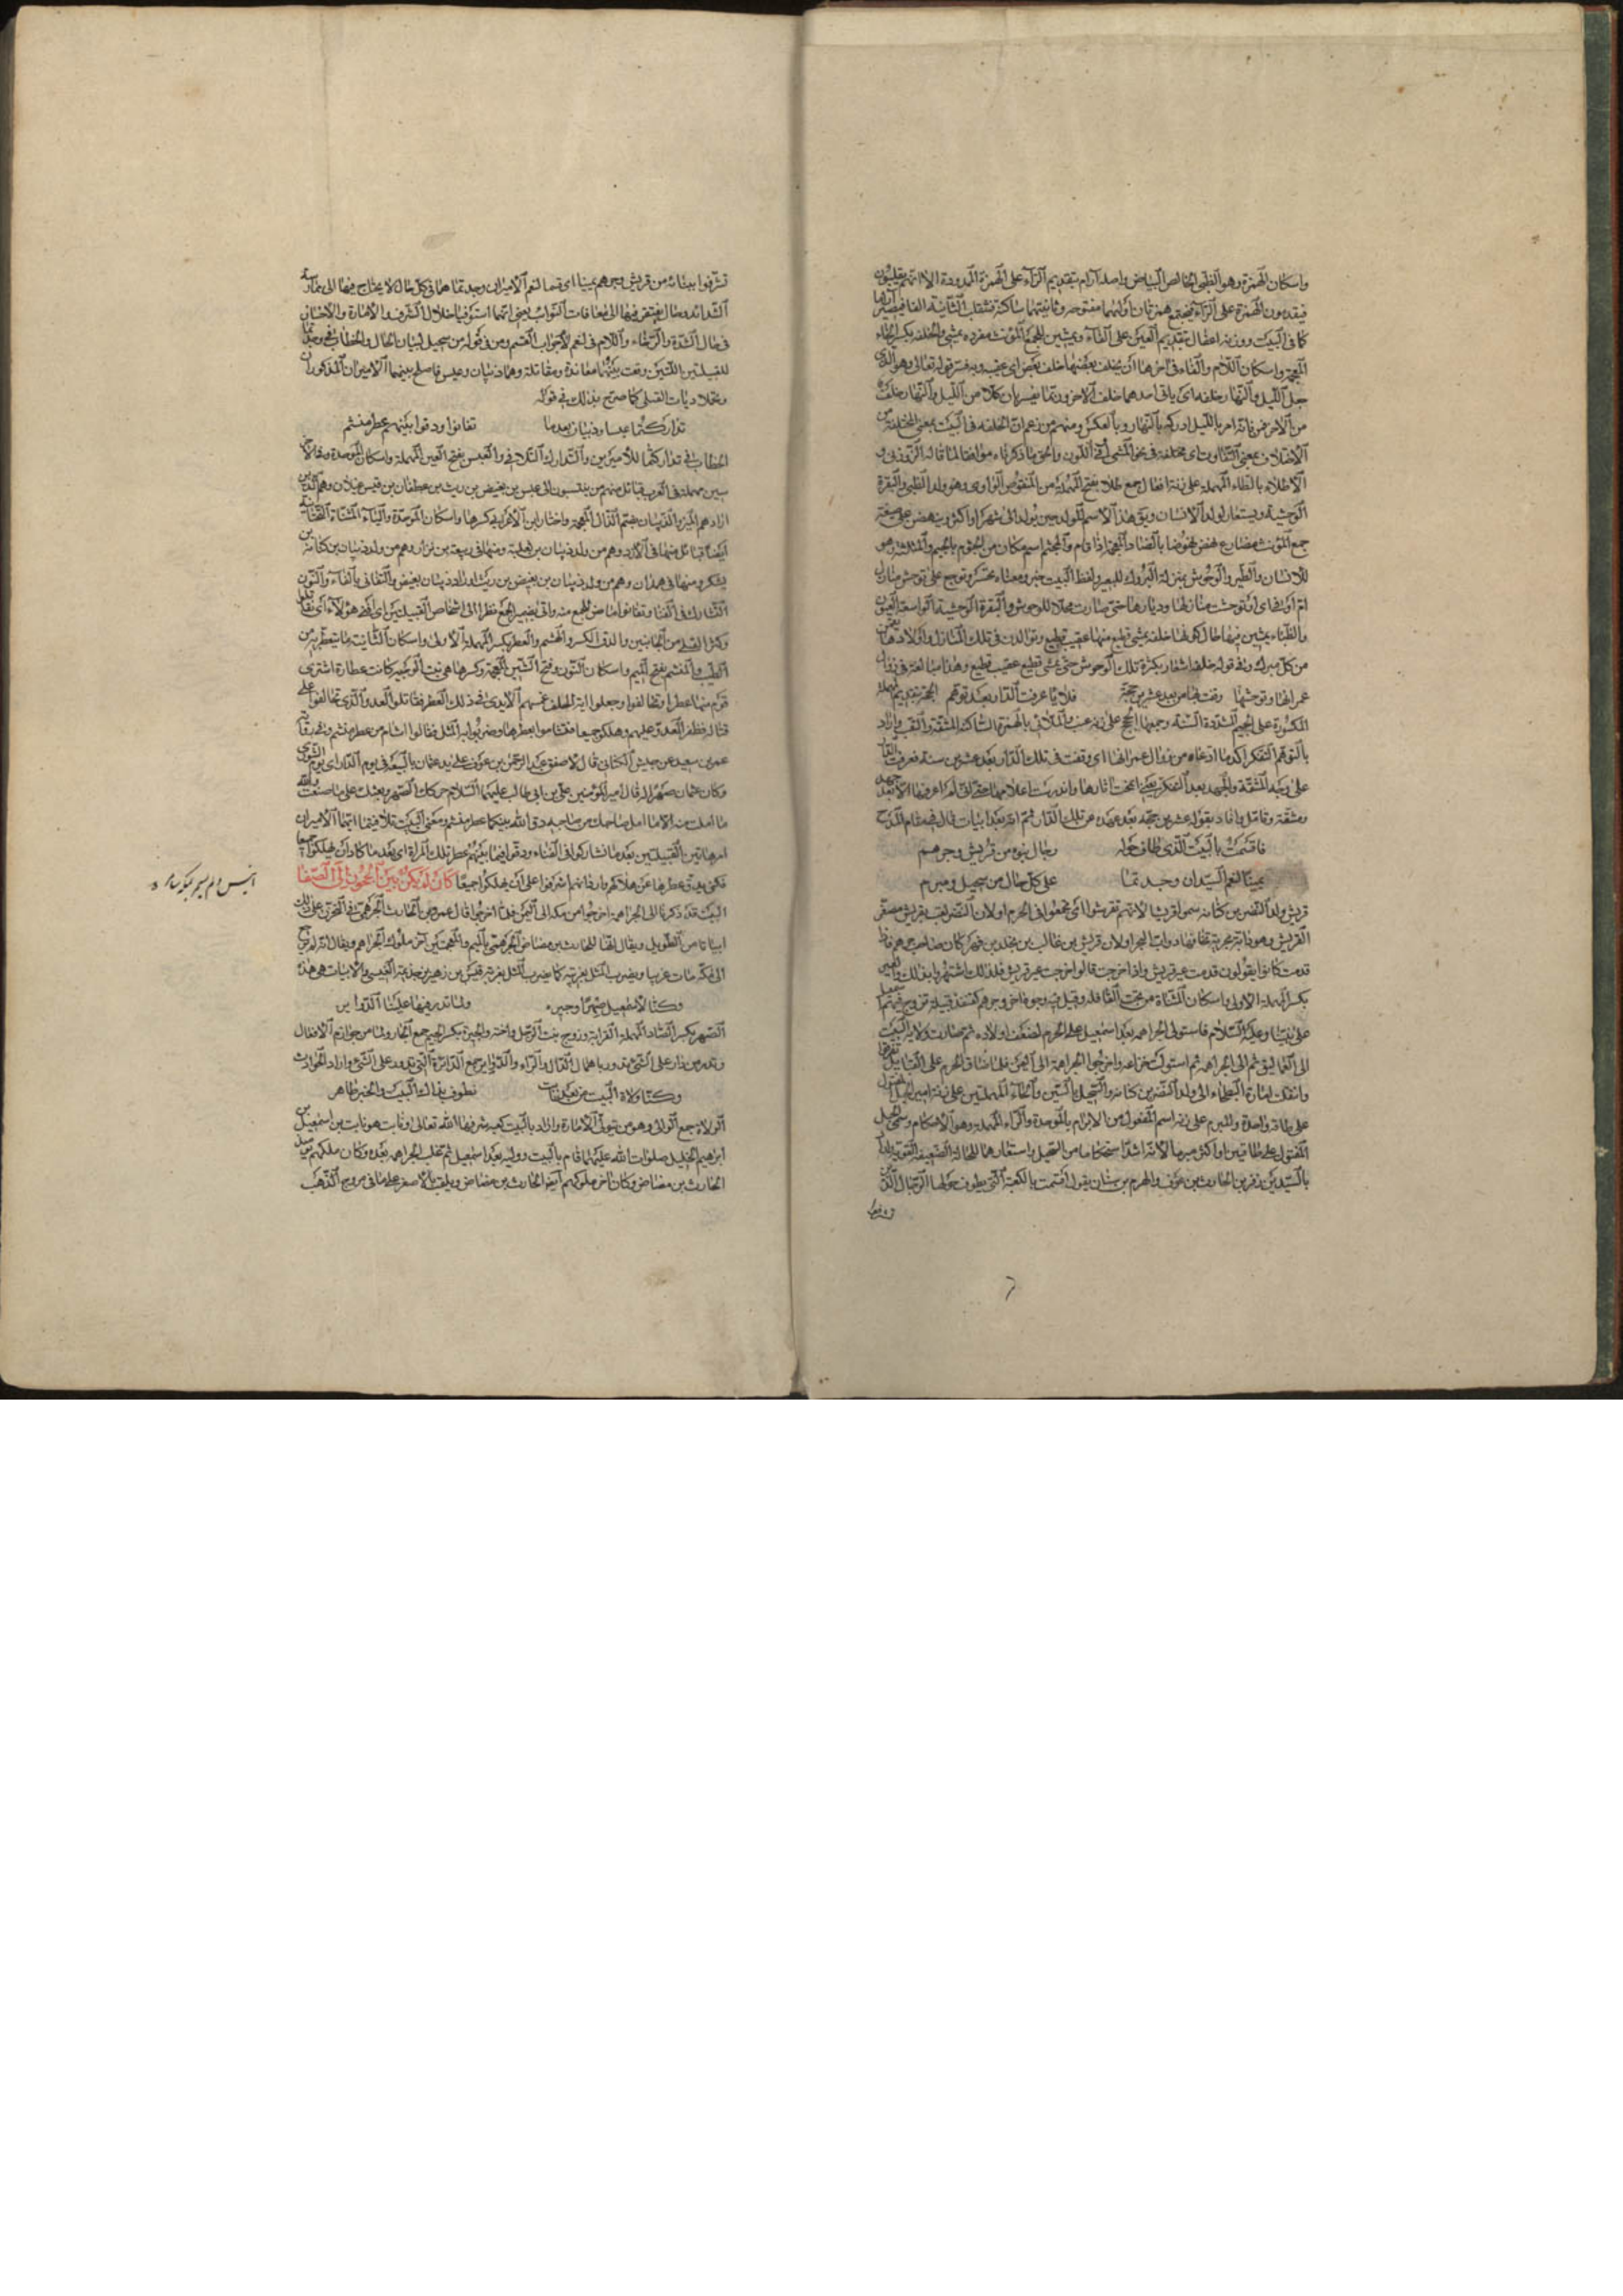 واسكان الهمزة وهو الظبى الخالص البياض واصله آرام بتقديم الراء على الهمزة الممدودة الا انهم يقلبون
فيقدمون الهمزة على الراء فيجتمع همزتان اولهما مفتوحه وثانيتهما ساكنة فتقلب الثانية الفا فيصير آراما
كما فى البيت ووزنه اعفال بتقديم العين على الفاء ويمشين للجمع المونث مفرده يمشى والخلفه بكسر الخاء
المعجمة واسكان اللام والفاء فى آخرها ان يخلف بعضها خلف بعض اى عقيبه وبه فسر قوله تعالى وهو الذى
جعل الليل والنهار خلفه اى ياتى احدهما خلف الاخر وربما يفسر بان كلا من الليل والنهار خلف
من الآخر فمن فاته امر بالليل ادركه بالنهار وبالعكس ومنهم من زعم ان الخلفه فى البيت بمعنى المختلفة من
الاختلاف بمعنى التفاوت اى مختلفة فى نحو المشى او فى اللون والحق ما ذكرناه موافقا لما قاله الزوزنى و
الاطلاء بالطاء المهملة على زنة افعال جمع طلا بفتح المهملة من المنقوص الواوى وهو ولد الظبى والبقرة
الوحشية ويستعار لولد الانسان ويبقى هذا الاسم للولد حين يولد الى شهر او اكثر وينهضن على صيغة
جمع المؤنث مضارع نهض نهوضا بالضاد المعجمة اذا قام والمجثم اسم مكان من الجثوم بالجيم والمثلثة وهو
للانسان والطير والوحوش بمنزلة البروك للبعير ولفظ البيت خبر ومعناه تحسر وتوجع على توحش منازل
ام اوفى اى توحشت منازلها وديارها حتى صارت محلا للوحوش والبقرة الوحشية الواسعة العيون
والظباء يمشين فيها حال كونها خلفه يمشى قطيع منها عقيب قطيع وتوالدن فى تلك المنازل واولادها ينهضن
من كل مبرك وفى قوله خلفة اشعار بكثرة تلك الوحوش حتى يمشى قطيع عقيب قطيع وهذا مبالغة فى زوال
عمرانها وتوحشها وقفت بها من بعد عشرين حجة فلايا عرفت الدار بعد توهم الحجة بتقديم المهملة
المكسورة على الجيم المشددة السنة وجمعها الحجج على زنة عنب واللاى بالهمزة الساكنة المشقة والتعب واراد
بالتوهم التفكر اكد ما ادعاه من زوال عمرانها اى وقفت فى تلك الدار بعد عشرين سنة فعرفت الدار
على وجه المشقة والجهد بعد التفكر يعنى انمحت آثارها واندرست اعلامها حتى انى لم اعرفها الا بعد جهد
ومشقة وتامل وافاد بقوله عشرين حجة بعد عهده عن تلك الدار ثم انه بعد ابيات قال فى مقام المدح
فاقسمت بالبيت الذى طاف حوله رجال بنوه من قريش وجرهم
يمينا لنعم السيدان وجدتما على كل حال من سحيل ومبرم
قريش ولد النضر بن كنانه سموا قريشا لانهم تقرشوا اى تجمعوا فى الحرم او لان النضر لقب بقريش مصغر
القرش وهو دابة بحرية تخافها دواب البحر او لان قريش بن غالب بن مخلد بن فهر كان صاحب عيرهم فاذا
قدمت كانوا يقولون قدمت عير قريش واذا خرجت قالوا خرجت عير قريش فلذلك اشتهروا بذلك والعير
بكسر المهملة الاولى واسكان المثناة من تحت القافله وقيل فيه وجوه اخر وجرهم كقنفذ قبيلة تزوج فيهم اسمعيل
على نبينا وعليه السلام فاستولى الجراهمه بعد اسمعيل على الحرم لضعف اولاده ثم صارت ولاية البيت
الى العماليق ثم الى الجراهمة ثم استولت خزاعه واخرجوا الجراهمة الى اليمن فلما ضاق الحرم على القبائل تفرقوا
وانتقلت امارة البطحاء الى ولد النضر بن كنانه والسحيل بالسين والحاء المهملتين على زنة امير الحبل المفتول
على طاقة واحدة والمبرم على زنة اسم المفعول من الابرام بالموحدة والراء المهملة وهو الاحكام وسمى الحبل
المفتول على طاقين او اكثر مبرما لانه اشد استحكاما من السحيل واستعارهما للحالة الضعيفة والقوية واراد
بالسيدين هرم بن الحارث بن عوف والهرم بن سنان يقول اقسمت بالكعبة التى يطوف حولها الرجال الذين
تشرفوا ببنائه من قريش وجرهم يمينا اى قسما لنعم الاميران وجدتما هما فى كل حال لا يحتاج فيها الى ممارسة
الشدائد وحال يفتقر فيها الى معاناة النوائب يعنى انهما استوفيا خلال الشرف والامارة والاحسان
فى حال الشدة والرخاء واللام فى لنعم لجواب القسم ومن فى قوله من سحيل لبيان الحال والخطاب فى وجدتما
للقبيلتين اللتين وقعت بينهما معاندة ومقاتلة وهما ذبيان وعبس فاصلح بينهما الاميران المذكوران
وتحملا ديات القتلى كما صرح بذلك فى قوله
تداركتما عبسا وذبيان بعدما تفانوا ودقوا بينهم عطر منشم
الخطاب فى تداركتما للاميرين والتدارك التلافى والعبس بفتح العين المهملة واسكان الموحدة وفى الآخر
سين مهملة فى العرب قبائل منهم من ينتسبون الى عبس بن بغيض بن ريث بن غطفان بن قيس عيلان وهم الذين
ارادهم الميرز والذبيان بضم الذال المعجمة واختار ابن الاعرابى كسرها واسكان الموحدة والياء المثناة التحتانية
ايضا قبائل منها فى الازد وهم من ولد ذبيان بن ثعلبة ومنها فى ربيعة بن نزار وهم من ولد ذبيان بن كنانة بن
يشكر ومنها فى همدان وهم من ولد ذبيان بن بغيض بن ريث اراد ذبيان بغيض والتفانى بالفاء والنون
التشارك فى الفناء وتفانوا ماض للجمع منه واتى بضمير الجمع نظرا الى اشخاص القبيلتين اى افنى هؤلاء اى تقاتلوا
وكثر القتلى من الجانبين والدق الكسر والهشم والعطر بكسر المهملة الاولى واسكان الثانية ما يتعطر به من
الطيب والمنشم بفتح الميم واسكان النون وفتح الشين المعجمة وكسرها هى بنت الوجيه كانت عطارة اشترى
قوم منها عطرا وتحالفوا وجعلوا آية الحلف غمسهم الايدى فى ذلك العطر فقاتلوا العدو الذى تحالفوا على
قتاله فظفر العدو عليهم وهلكوا جميعا فتشاموا بعطرها وضربوا به المثل فقالوا اشام من عطر منشم وفى رواية
عمر بن سعيد عن حبيش الكنانى قال لما صفق عبد الرحمن بن عوف على يد عثمان بالبيعة فى يوم الدار اى يوم الشورى
وكان عثمان صهرا له قال امير المؤمنين على بن ابى طالب عليهما السلام حركك الصهر وبعثك على ما صنعت والله
ما املت منه الا ما امل صاحبك من صاحبه دق الله بينكما عطر منشم ومعنى البيت تلافيتما ايها الاميران
امر هاتين القبيلتين بعد ما تشاركوا فى الفناء ودقوا فيما بينهم عطر تلك المراة اى بعد ما كادا ان يهلكوا جميعا
فكنى بدق عطرها عن هلاكهم دار فانهم اشرفوا على ان يهلكوا جميعا كان لم يكن بين الحجون الى الصفا
البيت قد ذكرنا ان الجراهمة اخرجوا من مكه الى اليمن فلما اخرجوا قال عمرو بن الحارث الجرهمى فى التحزن على ذلك
ابياتا من الطويل ويقال انها للحارث بن مضاض الجرهمى بالميم والمعجمتين آخر ملوك الجراهم ويقال انه لم يرجع
الى مكة مات غريبا ويضرب المثل بغربته كما ضرب المثل بغربة قيس بن زهير بن جذيمة العبسى والابيات هى هذه
وكنا لاسمعيل صهرا وجيرة ولما تدر فيها علينا الدوائر
الصهر بكسر الصاد المهملة القرابة وزوج بنت الرجل واخته والجيرة بكسر الجيم جمع الجار ولما من جوازم الافعال
وتدر من دار على الشئ يدور باهمال الدال والراء والدوائر جمع الدائرة التى تدور على الشئ واراد الحوادث
وكنا ولاة البيت من بعد نابت نطوف بذاك البيت والخير ظاهر
الولاة جمع الوالى وهو من تولى الامارة واراد بالبيت كعبه شرفها الله تعالى ونابت هو نابت بن اسمعيل بن
ابرهيم الخليل صلوات الله عليهما قام بالبيت ووليه بعد اسمعيل ثم غلب الجراهمه بعده وكان ملكهم يومئذ
الحارث بن مضاض وكان آخر ملوكهم ايضا الحارث بن مضاض ويلقب بالاصغر على ما فى مروج الذهب